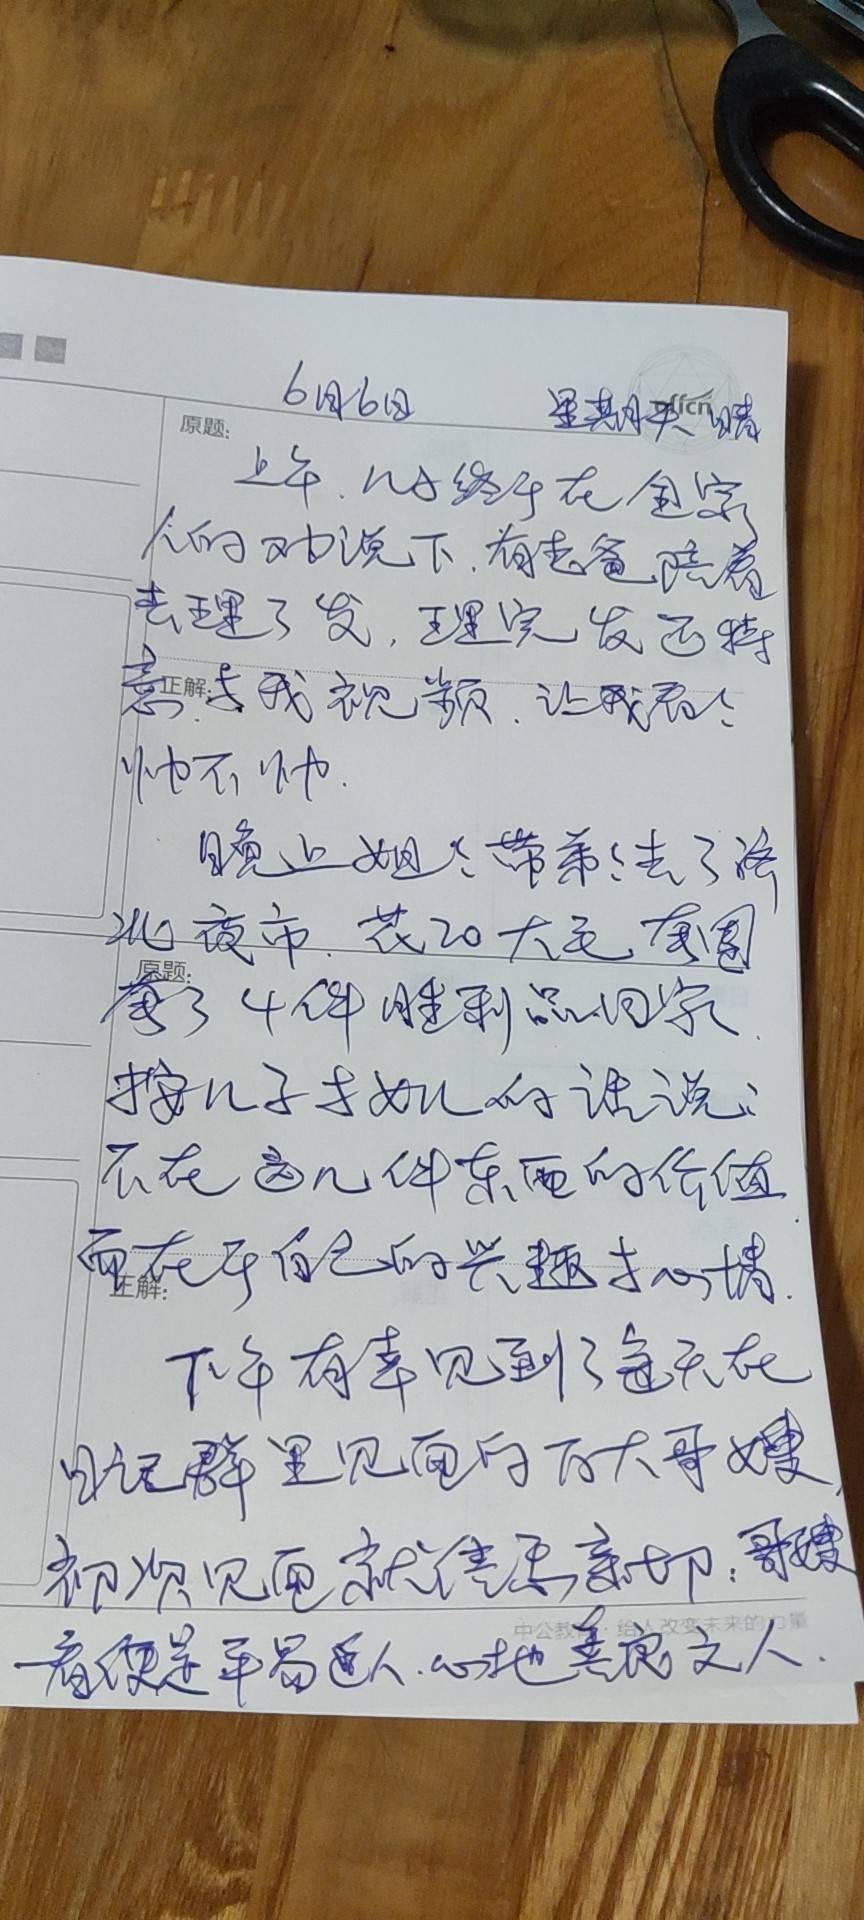 6月6日 星期天 晴
offcn
原题:
上午，儿子终于在全家
人的劝说下，有老爸陪着
去理了发，理完发还特
意与我视频，让我看看
正解:
帅不帅.
晚上姐姐带弟弟去了
北夜市，花20大毛，套圈
原题:
套了4件胜利品回家.
按儿子女儿的话说:
不在这几件东西的价值
而在于自己的兴趣与心情.
正解:
下午有幸见到了每天在
日记群里见面的大哥嫂，
初次见面就倍感亲切，哥嫂
中公教育·给人改变未来的力量
一看便是平易近人.心地善良文人.